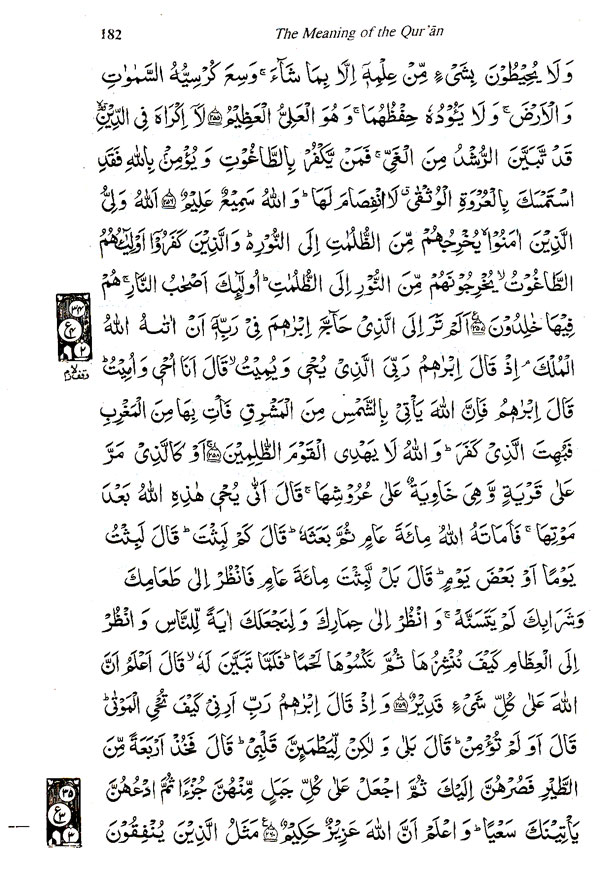 182 The Meaning of the Qur'ān
وَلَا يُحِيْطُوْنَ بِشَيْءٍ مِّنْ عِلْمِهٖٓ اِلَّا بِمَا شَآءَ ۚ وَسِعَ كُرْسِيُّهُ السَّمٰوٰتِ
وَالْاَرْضَ ۚ وَلَا يَـُٔوْدُهٗ حِفْظُهُمَا ۚ وَهُوَ الْعَلِيُّ الْعَظِيْمُ ﴿۲۵۵﴾ لَآ اِكْرَاهَ فِي الدِّيْنِ ۙ
قَدْ تَّبَيَّنَ الرُّشْدُ مِنَ الْغَيِّ ۚ فَمَنْ يَّكْفُرْ بِالطَّاغُوْتِ وَيُؤْمِنْ بِاللّٰهِ فَقَدِ
اسْتَمْسَكَ بِالْعُرْوَةِ الْوُثْقٰى ۗ لَا انْفِصَامَ لَهَا ؕ وَاللّٰهُ سَمِيْعٌ عَلِيْمٌ ﴿۲۵۶﴾ اَللّٰهُ وَلِيُّ
الَّذِيْنَ اٰمَنُوْا ۙ يُخْرِجُهُمْ مِّنَ الظُّلُمٰتِ اِلَى النُّوْرِ ؕ وَالَّذِيْنَ كَفَرُوْٓا اَوْلِيٰٓـُٔهُمُ
الطَّاغُوْتُ ۙ يُخْرِجُوْنَهُمْ مِّنَ النُّوْرِ اِلَى الظُّلُمٰتِ ؕ اُولٰٓئِكَ اَصْحٰبُ النَّارِ ۚ هُمْ
فِيْهَا خٰلِدُوْنَ ﴿۲۵۷﴾ اَلَمْ تَرَ اِلَى الَّذِيْ حَآجَّ اِبْرٰهٖمَ فِيْ رَبِّهٖٓ اَنْ اٰتٰىهُ اللّٰهُ
الْمُلْكَ ۘ اِذْ قَالَ اِبْرٰهٖمُ رَبِّيَ الَّذِيْ يُحْيٖ وَيُمِيْتُ ۙ قَالَ اَنَا اُحْيٖ وَاُمِيْتُ ؕ
قَالَ اِبْرٰهٖمُ فَاِنَّ اللّٰهَ يَاْتِيْ بِالشَّمْسِ مِنَ الْمَشْرِقِ فَاْتِ بِهَا مِنَ الْمَغْرِبِ
فَبُهِتَ الَّذِيْ كَفَرَ ؕ وَاللّٰهُ لَا يَهْدِى الْقَوْمَ الظّٰلِمِيْنَ ﴿۲۵۸﴾ اَوْ كَالَّذِيْ مَرَّ
عَلٰى قَرْيَةٍ وَّهِيَ خَاوِيَةٌ عَلٰى عُرُوْشِهَا ۚ قَالَ اَنّٰى يُحْيٖ هٰذِهِ اللّٰهُ بَعْدَ
مَوْتِهَا ۚ فَاَمَاتَهُ اللّٰهُ مِائَةَ عَامٍ ثُمَّ بَعَثَهٗ ؕ قَالَ كَمْ لَبِثْتَ ؕ قَالَ لَبِثْتُ
يَوْمًا اَوْ بَعْضَ يَوْمٍ ؕ قَالَ بَلْ لَّبِثْتَ مِائَةَ عَامٍ فَانْظُرْ اِلٰى طَعَامِكَ
وَشَرَابِكَ لَمْ يَتَسَنَّهْ ۚ وَانْظُرْ اِلٰى حِمَارِكَ وَلِنَجْعَلَكَ اٰيَةً لِّلنَّاسِ وَانْظُرْ
اِلَى الْعِظَامِ كَيْفَ نُنْشِزُهَا ثُمَّ نَكْسُوْهَا لَحْمًا ؕ فَلَمَّا تَبَيَّنَ لَهٗ ۙ قَالَ اَعْلَمُ اَنَّ
اللّٰهَ عَلٰى كُلِّ شَيْءٍ قَدِيْرٌ ﴿۲۵۹﴾ وَاِذْ قَالَ اِبْرٰهٖمُ رَبِّ اَرِنِيْ كَيْفَ تُحْيِ الْمَوْتٰى ؕ
قَالَ اَوَلَمْ تُؤْمِنْ ؕ قَالَ بَلٰى وَلٰكِنْ لِّيَطْمَئِنَّ قَلْبِيْ ؕ قَالَ فَخُذْ اَرْبَعَةً مِّنَ
الطَّيْرِ فَصُرْهُنَّ اِلَيْكَ ثُمَّ اجْعَلْ عَلٰى كُلِّ جَبَلٍ مِّنْهُنَّ جُزْءًا ثُمَّ ادْعُهُنَّ
يَاْتِيْنَكَ سَعْيًا ؕ وَاعْلَمْ اَنَّ اللّٰهَ عَزِيْزٌ حَكِيْمٌ ﴿۲۶۰﴾ مَثَلُ الَّذِيْنَ يُنْفِقُوْنَ